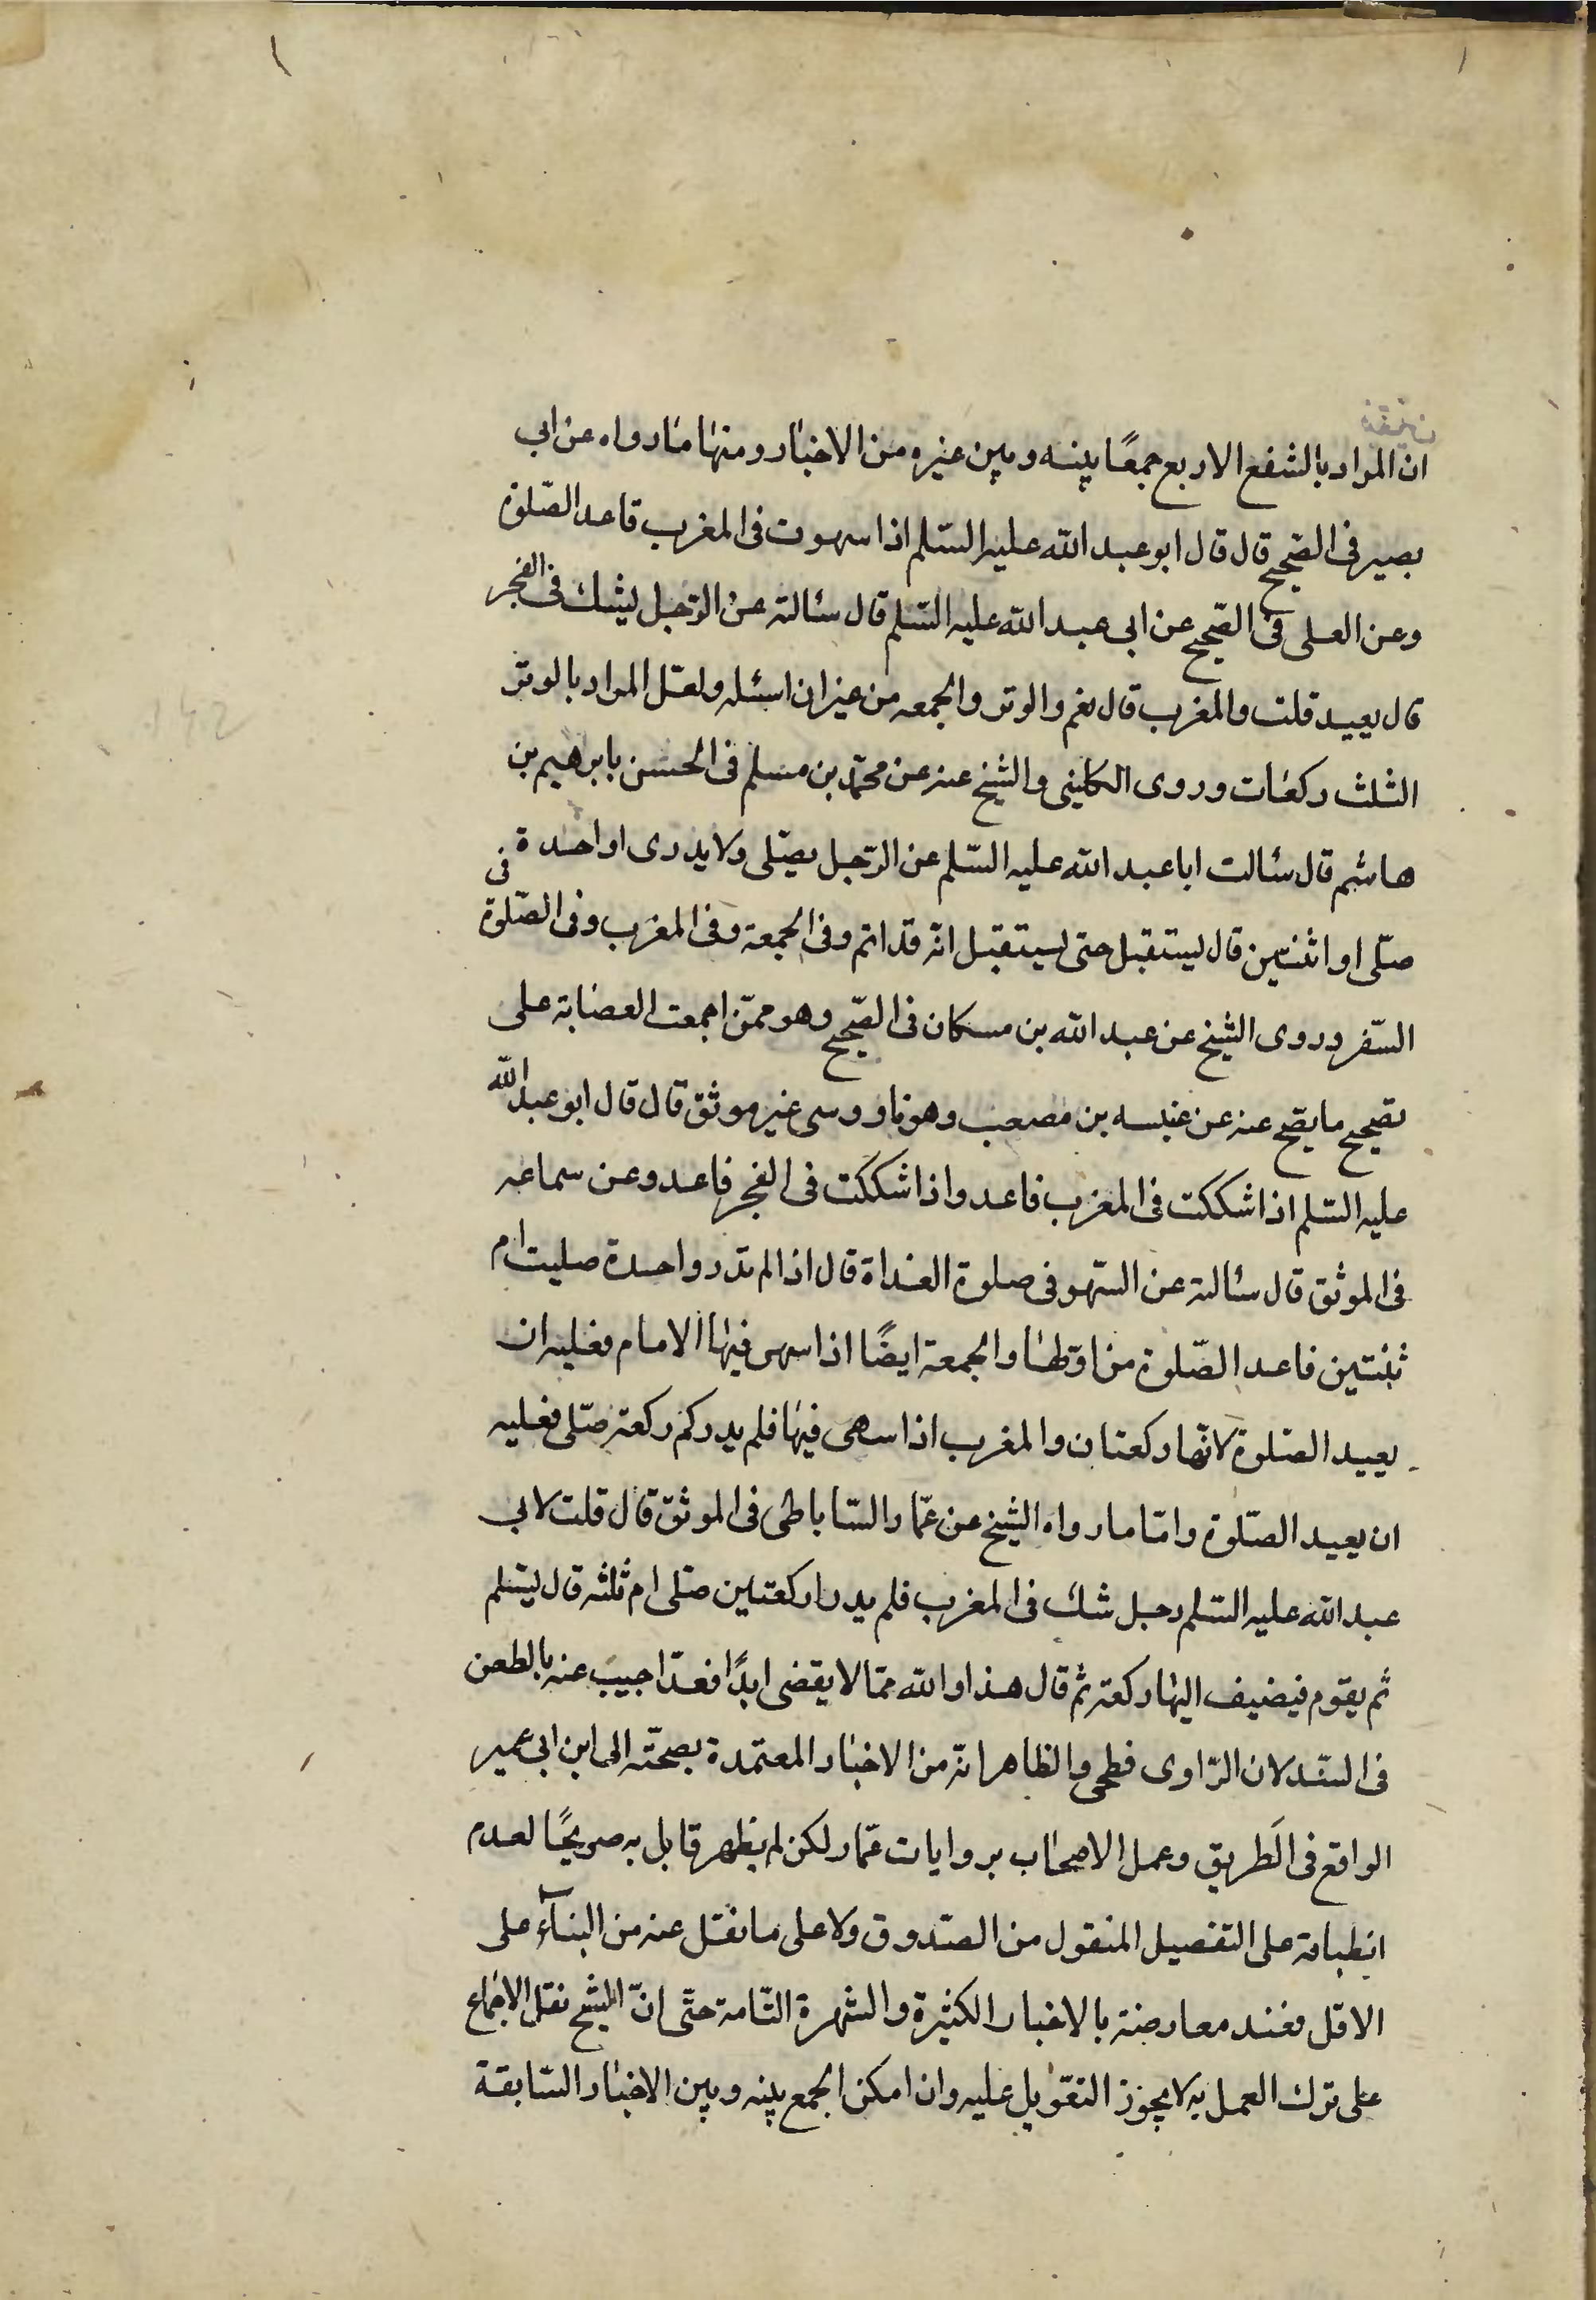 ان المراد بالشفع الاربع جمعًا بينه وبين غيره من الاخبار ومنها ما رواه عن ابى
بصير فى الصّحيح قال قال ابو عبد الله عليه السّلم اذا سهوت فى المغرب فاعد الصّلوة
وعن العلى فى الصّحيح عن ابى عبد الله عليه السّلم قال سئالته عن الرّجل يشك فى الفجر
قال يعيد قلت والمغرب قال نعم والوتر والجمعه من غير ان اسئله ولعل المراد بالوتر
الثلث ركعات وروى الكلينى والشيخ عنه عن محمّد بن مسلم فى الحسن بابرهيم بن
هاشم قال سئالت ابا عبد الله عليه السّلم عن الرّجل يصلّى ولا يدرى او احدة
صلّى او اثنتين قال ليستقبل حتى يستقبل انّه قد اتم وفى الجمعة وفى المغرب وفى الصّلوة فى
السّفر وروى الشيخ عن عبد الله بن مسكان فى الصّحيح وهو ممّن اجمعت العصابة على
تصحيح ما يصح عنه عن عنبسه بن مصعب وهو ناووسى غير موثق قال قال ابو عبد الله
عليه السّلم اذا شككت فى المغرب فاعد واذا شككت فى الفجر فاعد وعن سماعه
فى الموثق قال سئالته عن السّهو فى صلوة الغداة قال اذا لم تدر واحدة صليت ام
ثنتين فاعد الصّلوة من اوّلها والجمعة ايضًا اذا سهى فيها الامام فعليه ان
يعيد الصّلوة لانّها ركعتان والمغرب اذا سهى فيها فلم يدر كم ركعة صلّى فعليه
ان يعيد الصّلوة وامّا ما رواه الشيخ عن عمّار السّاباطى فى الموثق قال قلت لابى
عبد الله عليه السّلم رجل شك فى المغرب فلم يدر اركعتين صلى ام ثلثه قال يسّلم
ثم يقوم فيضيف اليها ركعة ثم قال هذا والله ممّا لا يقضى ابدًا فعدّ اجيب عنه بالطعن
فى السّند لان الرّاوى فطحى والظاهر انّه من الاخبار المعتمدة بصحّته الى ابن ابى عمير
الواقع فى الطريق وعمل الاصحاب بروايات عمّار لكن لم يظهر قابل به صريحًا لعدم
انطباقه على التفصيل المنقول من الصّدوق ولا على ما نقل عنه من البنآء على
الاقل فعند معارضة بالاخبار الكثيرة والشهرة التّامة حتّى انّ الشيخ نقل الاجماع
على ترك العمل به لا يجوز التعّويل عليه وان امكن الجمع بينه وبين الاخبار السّابقة